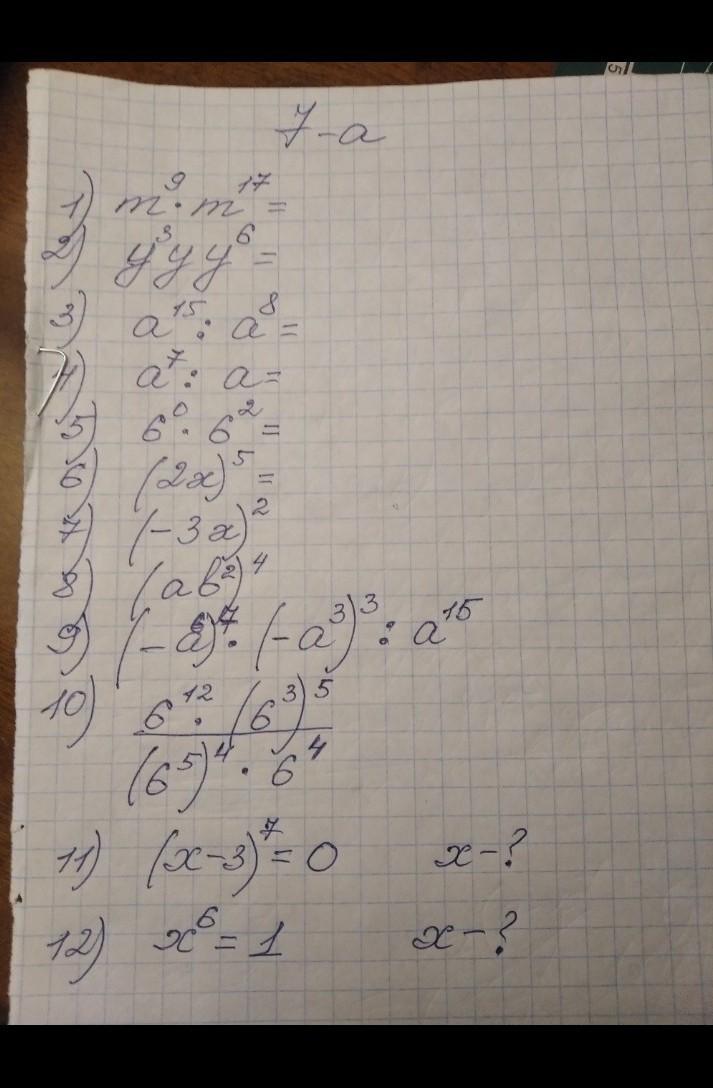 7-а
1) m⁹ · m¹⁷ =
2) y³ y y⁶ =
3) a¹⁵ : a⁸ =
4) a⁷ : a =
5) 6⁰ · 6² =
6) (2x)⁵ =
7) (-3x)²
8) (ab²)⁴
9) (-a⁶)⁷ · (-a³)³ : a¹⁵
10) 6¹² · (6³)⁵
(6⁵)⁴ · 6⁴
11) (x-3)⁷ = 0 x-?
12) x⁶ = 1 x-?